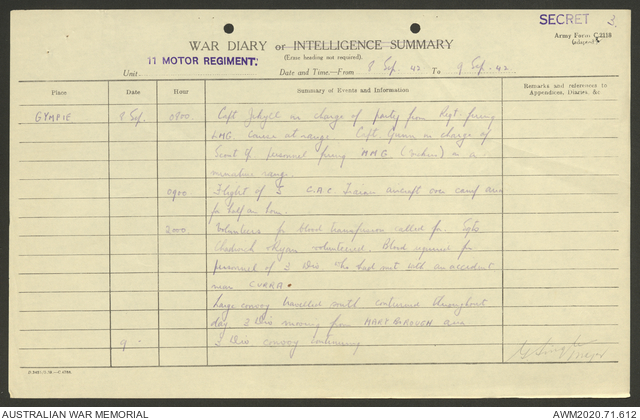 SECRET 3.
Army Form C.2118
(adapted)
WAR DIARY or INTELLIGENCE SUMMARY
(Erase heading not required).
11 MOTOR REGIMENT.
Unit
Date and Time—From 8 Sep. 42 To 9 Sep. 42
Place Hour Summary of Events and Information Remarks and references to Appendices, Diaries, &c
GYMPIE 8 Sep. 0800. Capt Jekyll in charge of party from Regt firing
LMG. Course at range. Capt. in charge of
Scout personnel firing MMG (Vickers) on a
miniature range.
0900. Flight of 5 C.A.C. aircraft over camp area
for half an hour.
2000. Volunteers for blood transfusion called for. Sgts
Chadwick volunteered. Blood required for
personnel of 3 Div who had met with an accident
near CURRA.
Large convoy travelled south continued throughout
day 3 Div moving from MARYBOROUGH area
9 3 Div. convoy continuing
Major
AUSTRALIAN WAR MEMORIAL
AWM2020.71.612